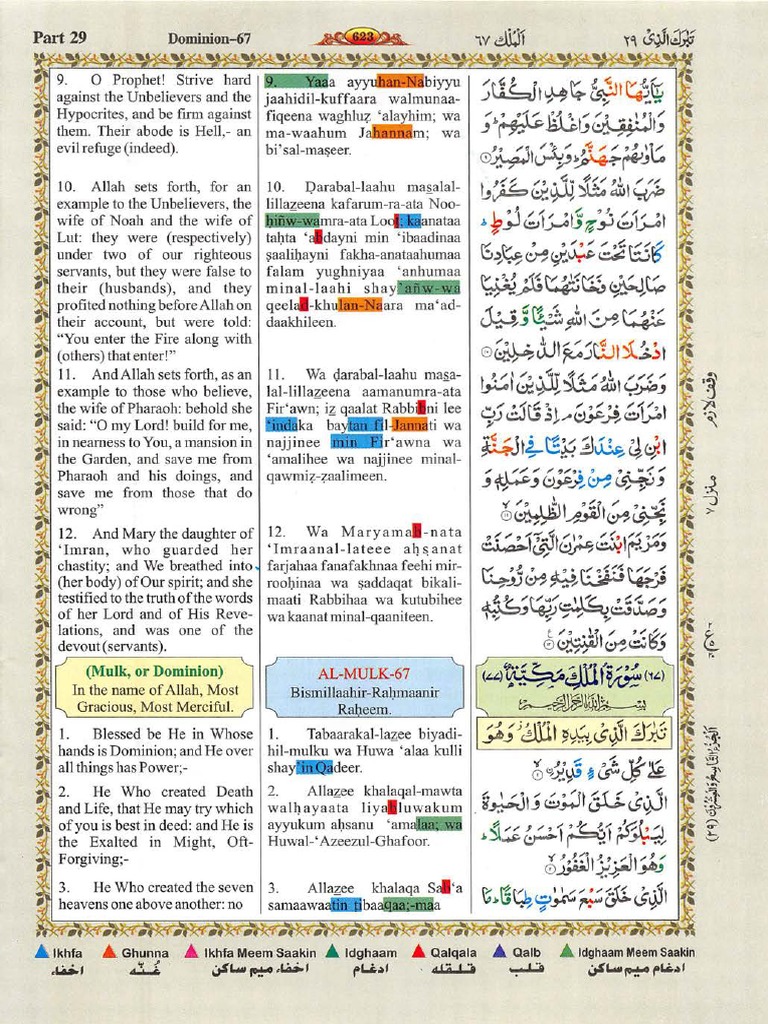 Part 29
Dominion–67
623
اَلْمُلْك ٦٧
تَبٰرَكَ الَّذِىْ ٢٩
9. O Prophet! Strive hard
against the Unbelievers and the
Hypocrites, and be firm against
them. Their abode is Hell,- an
evil refuge (indeed).
10. Allah sets forth, for an
example to the Unbelievers, the
wife of Noah and the wife of
Lut: they were (respectively)
under two of our righteous
servants, but they were false to
their (husbands), and they
profited nothing before Allah on
their account, but were told:
“You enter the Fire along with
(others) that enter!”
11. And Allah sets forth, as an
example to those who believe,
the wife of Pharaoh: behold she
said: “O my Lord! build for me,
in nearness to You, a mansion in
the Garden, and save me from
Pharaoh and his doings, and
save me from those that do
wrong”
12. And Mary the daughter of
‘Imran, who guarded her
chastity; and We breathed into
(her body) of Our spirit; and she
testified to the truth of the words
of her Lord and of His Reve-
lations, and was one of the
devout (servants).
(Mulk, or Dominion)
In the name of Allah, Most
Gracious, Most Merciful.
1. Blessed be He in Whose
hands is Dominion; and He over
all things has Power;-
2. He Who created Death
and Life, that He may try which
of you is best in deed: and He is
the Exalted in Might, Oft-
Forgiving;-
3. He Who created the seven
heavens one above another: no
9. Yaaa ayyuhan-Nabiyyu
jaahidil-kuffaara walmunaa-
fiqeena waghluẓ ‘alayhim; wa
ma-waahum Jahannam; wa
bi’sal-maṣeer.
10. Ḍarabal-laahu mas̱alal-
lillaẕeena kafarum-ra-ata Noo-
ḥiñw-wamra-ata Looṭ; kaanataa
taḥta ‘abdayni min ‘ibaadinaa
ṣaaliḥayni fakha-anataahumaa
falam yughniyaa ‘anhumaa
minal-laahi shay’añw-wa
qeelad-khulan-Naara ma‘ad-
daakhileen.
11. Wa ḍarabal-laahu mas̱a-
lal-lillaẕeena aamanumra-ata
Fir‘awn; iẕ qaalat Rabbibni lee
‘indaka baytan fil-Jannati wa
najjinee min Fir‘awna wa
‘amalihee wa najjinee minal-
qawmiẓ-ẓaalimeen.
12. Wa Maryamab-nata
‘Imraanal-lateee aḥṣanat
farjahaa fanafakhnaa feehi mir-
rooḥinaa wa ṣaddaqat bikali-
maati Rabbihaa wa kutubihee
wa kaanat minal-qaaniteen.
AL-MULK-67
Bismillaahir-Raḥmaanir
Raḥeem.
1. Tabaarakal-laẕee biyadi-
hil-mulku wa Huwa ‘alaa kulli
shay’in Qadeer.
2. Allaẕee khalaqal-mawta
walḥayaata liyabluwakum
ayyukum aḥsanu ‘amalaa; wa
Huwal-‘Azeezul-Ghafoor.
3. Allaẕee khalaqa Sab‘a
samaawaatin ṭibaaqaa;-maa
يٰۤاَيُّهَا النَّبِىُّ جَاهِدِ الْكُفَّارَ
وَالْمُنٰفِقِيْنَ وَاغْلُظْ عَلَيْهِمْ ؕ وَ
مَاْوٰىهُمْ جَهَنَّمُ ؕ وَبِئْسَ الْمَصِيْرُ ۹
ضَرَبَ اللّٰهُ مَثَلًا لِّلَّذِيْنَ كَفَرُوا
امْرَاَتَ نُوْحٍ وَّامْرَاَتَ لُوْطٍ ؕ
كَانَتَا تَحْتَ عَبْدَيْنِ مِنْ عِبَادِنَا
صَالِحَيْنِ فَخَانَتٰهُمَا فَلَمْ يُغْنِيَا
عَنْهُمَا مِنَ اللّٰهِ شَيْـًٔا وَّ قِيْلَ
ادْخُلَا النَّارَ مَعَ الدّٰخِلِيْنَ ۱۰
وَضَرَبَ اللّٰهُ مَثَلًا لِّلَّذِيْنَ اٰمَنُوا
امْرَاَتَ فِرْعَوْنَ ۘ اِذْ قَالَتْ رَبِّ
ابْنِ لِىْ عِنْدَكَ بَيْتًا فِى الْجَنَّةِ
وَ نَجِّنِىْ مِنْ فِرْعَوْنَ وَعَمَلِهٖ وَ
نَجِّنِىْ مِنَ الْقَوْمِ الظّٰلِمِيْنَ ۱۱
وَمَرْيَمَ ابْنَتَ عِمْرٰنَ الَّتِىْۤ اَحْصَنَتْ
فَرْجَهَا فَنَفَخْنَا فِيْهِ مِنْ رُّوْحِنَا
وَ صَدَّقَتْ بِكَلِمٰتِ رَبِّهَا وَكُتُبِهٖ
وَكَانَتْ مِنَ الْقٰنِتِيْنَ ۱۲
(٦٧) سُوْرَةُ الْمُلْكِ مَكِّيَّةٌ (٧٧)
بِسْمِ اللّٰهِ الرَّحْمٰنِ الرَّحِيْمِ
تَبٰرَكَ الَّذِىْ بِيَدِهِ الْمُلْكُ وَهُوَ
عَلٰى كُلِّ شَىْءٍ قَدِيْرٌ ۱
الَّذِىْ خَلَقَ الْمَوْتَ وَ الْحَيٰوةَ
لِيَبْلُوَكُمْ اَيُّكُمْ اَحْسَنُ عَمَلًا ؕ
وَهُوَ الْعَزِيْزُ الْغَفُوْرُ ۲
الَّذِىْ خَلَقَ سَبْعَ سَمٰوٰتٍ طِبَاقًا ؕ مَا
وقف لازم
منزل ٧
اَلْجُزْءُ التَّاسِعُ وَالْعِشْرُوْنَ (٢٩)
Ikhfa
Ghunna
Ikhfa Meem Saakin
Idghaam
Qalqala
Qalb
Idghaam Meem Saakin
اخفاء
غُنّه
اخفاء میم ساکن
ادغام
قلقله
قلب
ادغام میم ساکن